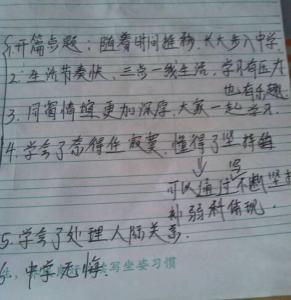 1.开篇点题：随着时间推移.长大步入中学.
2.生活节奏快，三点一线生活，学习有压力
也有乐趣.
3.同窗情谊更加深厚，大家一起学习.
4.学会了耐得住寂寞，懂得了坚持
可以通过写不断坚持
补弱科体现.
5.学会了处理人际关系.
6.中学无悔.
写坐姿习惯